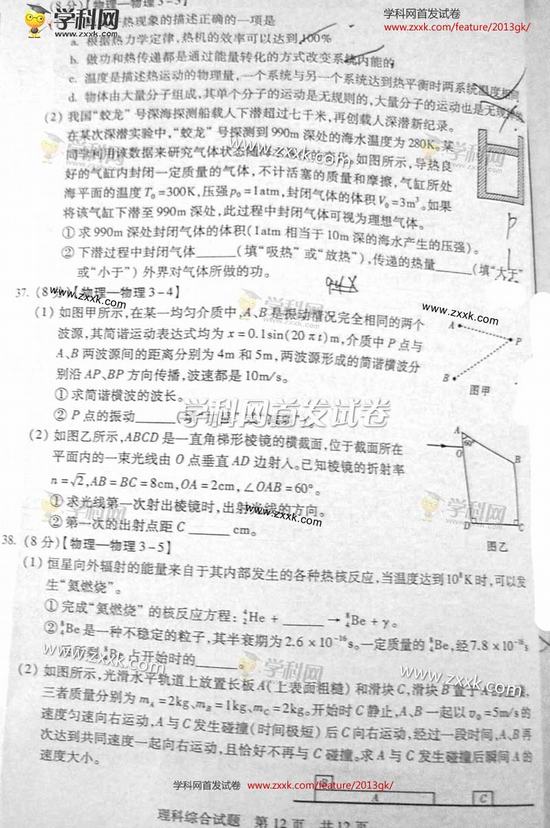 学科网首发试卷
www.zxxk.com/feature/2013gk/
(8分)【物理—物理3-5】
热现象的描述正确的一项是
a. 根据热力学定律,热机的效率可以达到100%
b. 做功和热传递都是通过能量转化的方式改变系统内能的
c. 温度是描述热运动的物理量,一个系统与另一个系统达到热平衡时两系统温度相同
d. 物体由大量分子组成,其单个分子的运动是无规则的,大量分子的运动也是无规
(2) 我国“蛟龙”号深海探测船载人下潜超过七千米,再创载人深潜新纪录。
在某次深潜实验中,“蛟龙”号探测到990m深处的海水温度为280K。某
同学利用该数据来研究气体状态随 如图所示,导热良
好的气缸内封闭一定质量的气体,不计活塞的质量和摩擦,气缸所处
海平面的温度T₀=300K,压强p₀=1atm,封闭气体的体积V₀=3m³。如果
将该气缸下潜至990m深处,此过程中封闭气体可视为理想气体。
① 求990m深处封闭气体的体积(1atm相当于10m深的海水产生的压强)。
② 下潜过程中封闭气体______(填“吸热”或“放热”),传递的热量______(填“大于”
或“小于”) 外界对气体所做的功。
37. (8分)【物理—物理3-4】
(1) 如图甲所示,在某一均匀介质中,A、B是振动情况完全相同的两个
波源,其简谐运动表达式均为x=0.1sin(20πt)m,介质中P点与
A、B两波源间的距离分别为4m和5m,两波源形成的简谐横波分
别沿AP、BP方向传播,波速都是10m/s。
① 求简谐横波的波长。
② P点的振动______
A
P
B
图甲
(2) 如图乙所示,ABCD是一直角梯形棱镜的横截面,位于截面所在
平面内的一束光线由O点垂直AD边射入。已知棱镜的折射率
n=√2,AB=BC=8cm,OA=2cm,∠OAB=60°。
① 求光线第一次射出棱镜时,出射光线的方向。
② 第一次的出射点距C ______ cm。
A
60°
O
B
D
C
图乙
38. (8分)【物理—物理3-5】
(1) 恒星向外辐射的能量来自于其内部发生的各种热核反应,当温度达到10⁸K时,可以发
生“氦燃烧”。
① 完成“氦燃烧”的核反应方程:⁴₂He + ______ → ⁸₄Be + γ。
② ⁸₄Be是一种不稳定的粒子,其半衰期为2.6×10⁻¹⁶s。一定质量的⁸₄Be,经7.8×10⁻¹⁶s
Be占开始时的______。
(2) 如图所示,光滑水平轨道上放置长板A(上表面粗糙)和滑块C,滑块B置于
三者质量分别为mA=2kg、mB=1kg、mC=2kg。开始时C静止,A、B一起以v₀=5m/s的
速度匀速向右运动,A与C发生碰撞(时间极短)后C向右运动,经过一段时间,A、B再
次达到共同速度一起向右运动,且恰好不再与C碰撞。求A与C发生碰撞后瞬间A的
速度大小。
B
A
C
学科网首发试卷
www.zxxk.com/feature/2013gk/
理科综合试题 第12页 共12页
学科网
www.zxxk.com
学科网首发试卷